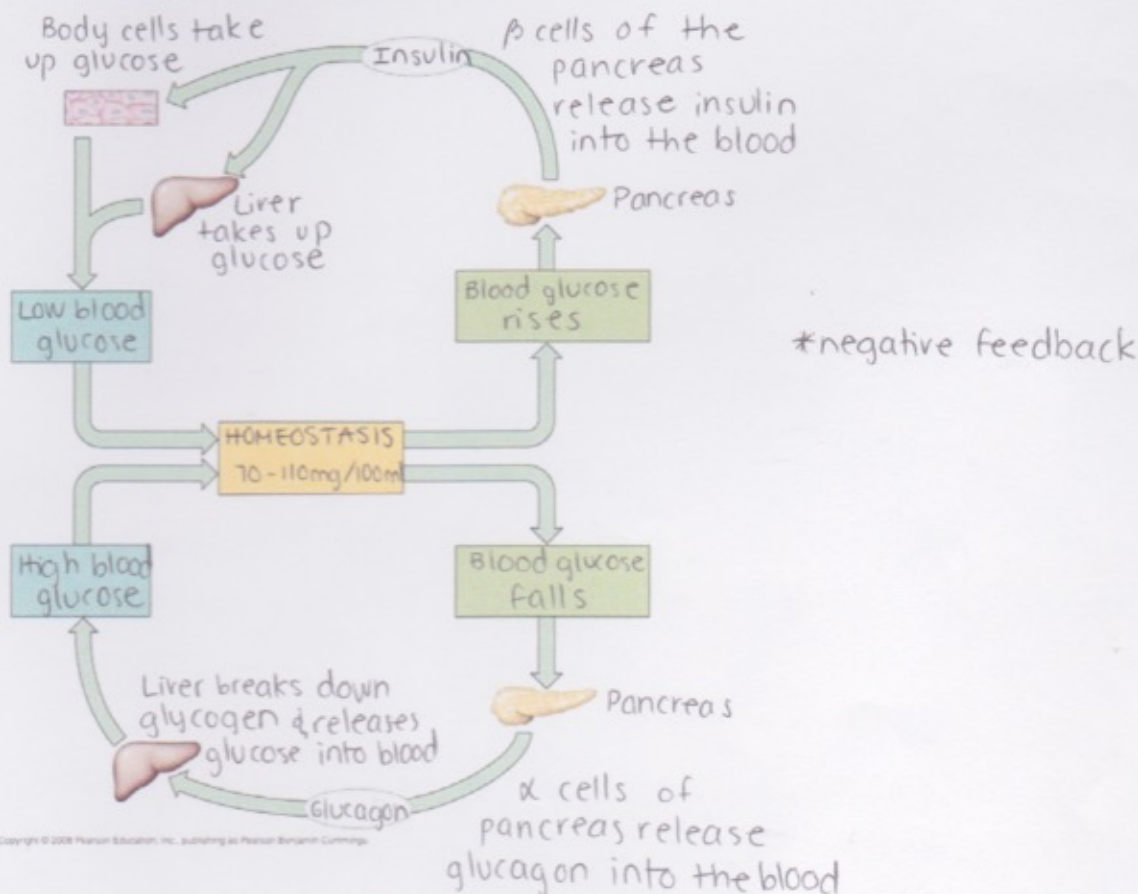 Body cells take
up glucose
Insulin
β cells of the
pancreas
release insulin
into the blood
Liver
takes up
glucose
Pancreas
Low blood
glucose
Blood glucose
rises
*negative feedback
HOMEOSTASIS
70-110mg/100ml
High blood
glucose
Blood glucose
falls
Liver breaks down
glycogen & releases
glucose into blood
Pancreas
Glucagon
α cells of
pancreas release
glucagon into the blood
Copyright © 2008 Pearson Education, Inc., publishing as Pearson Benjamin Cummings.